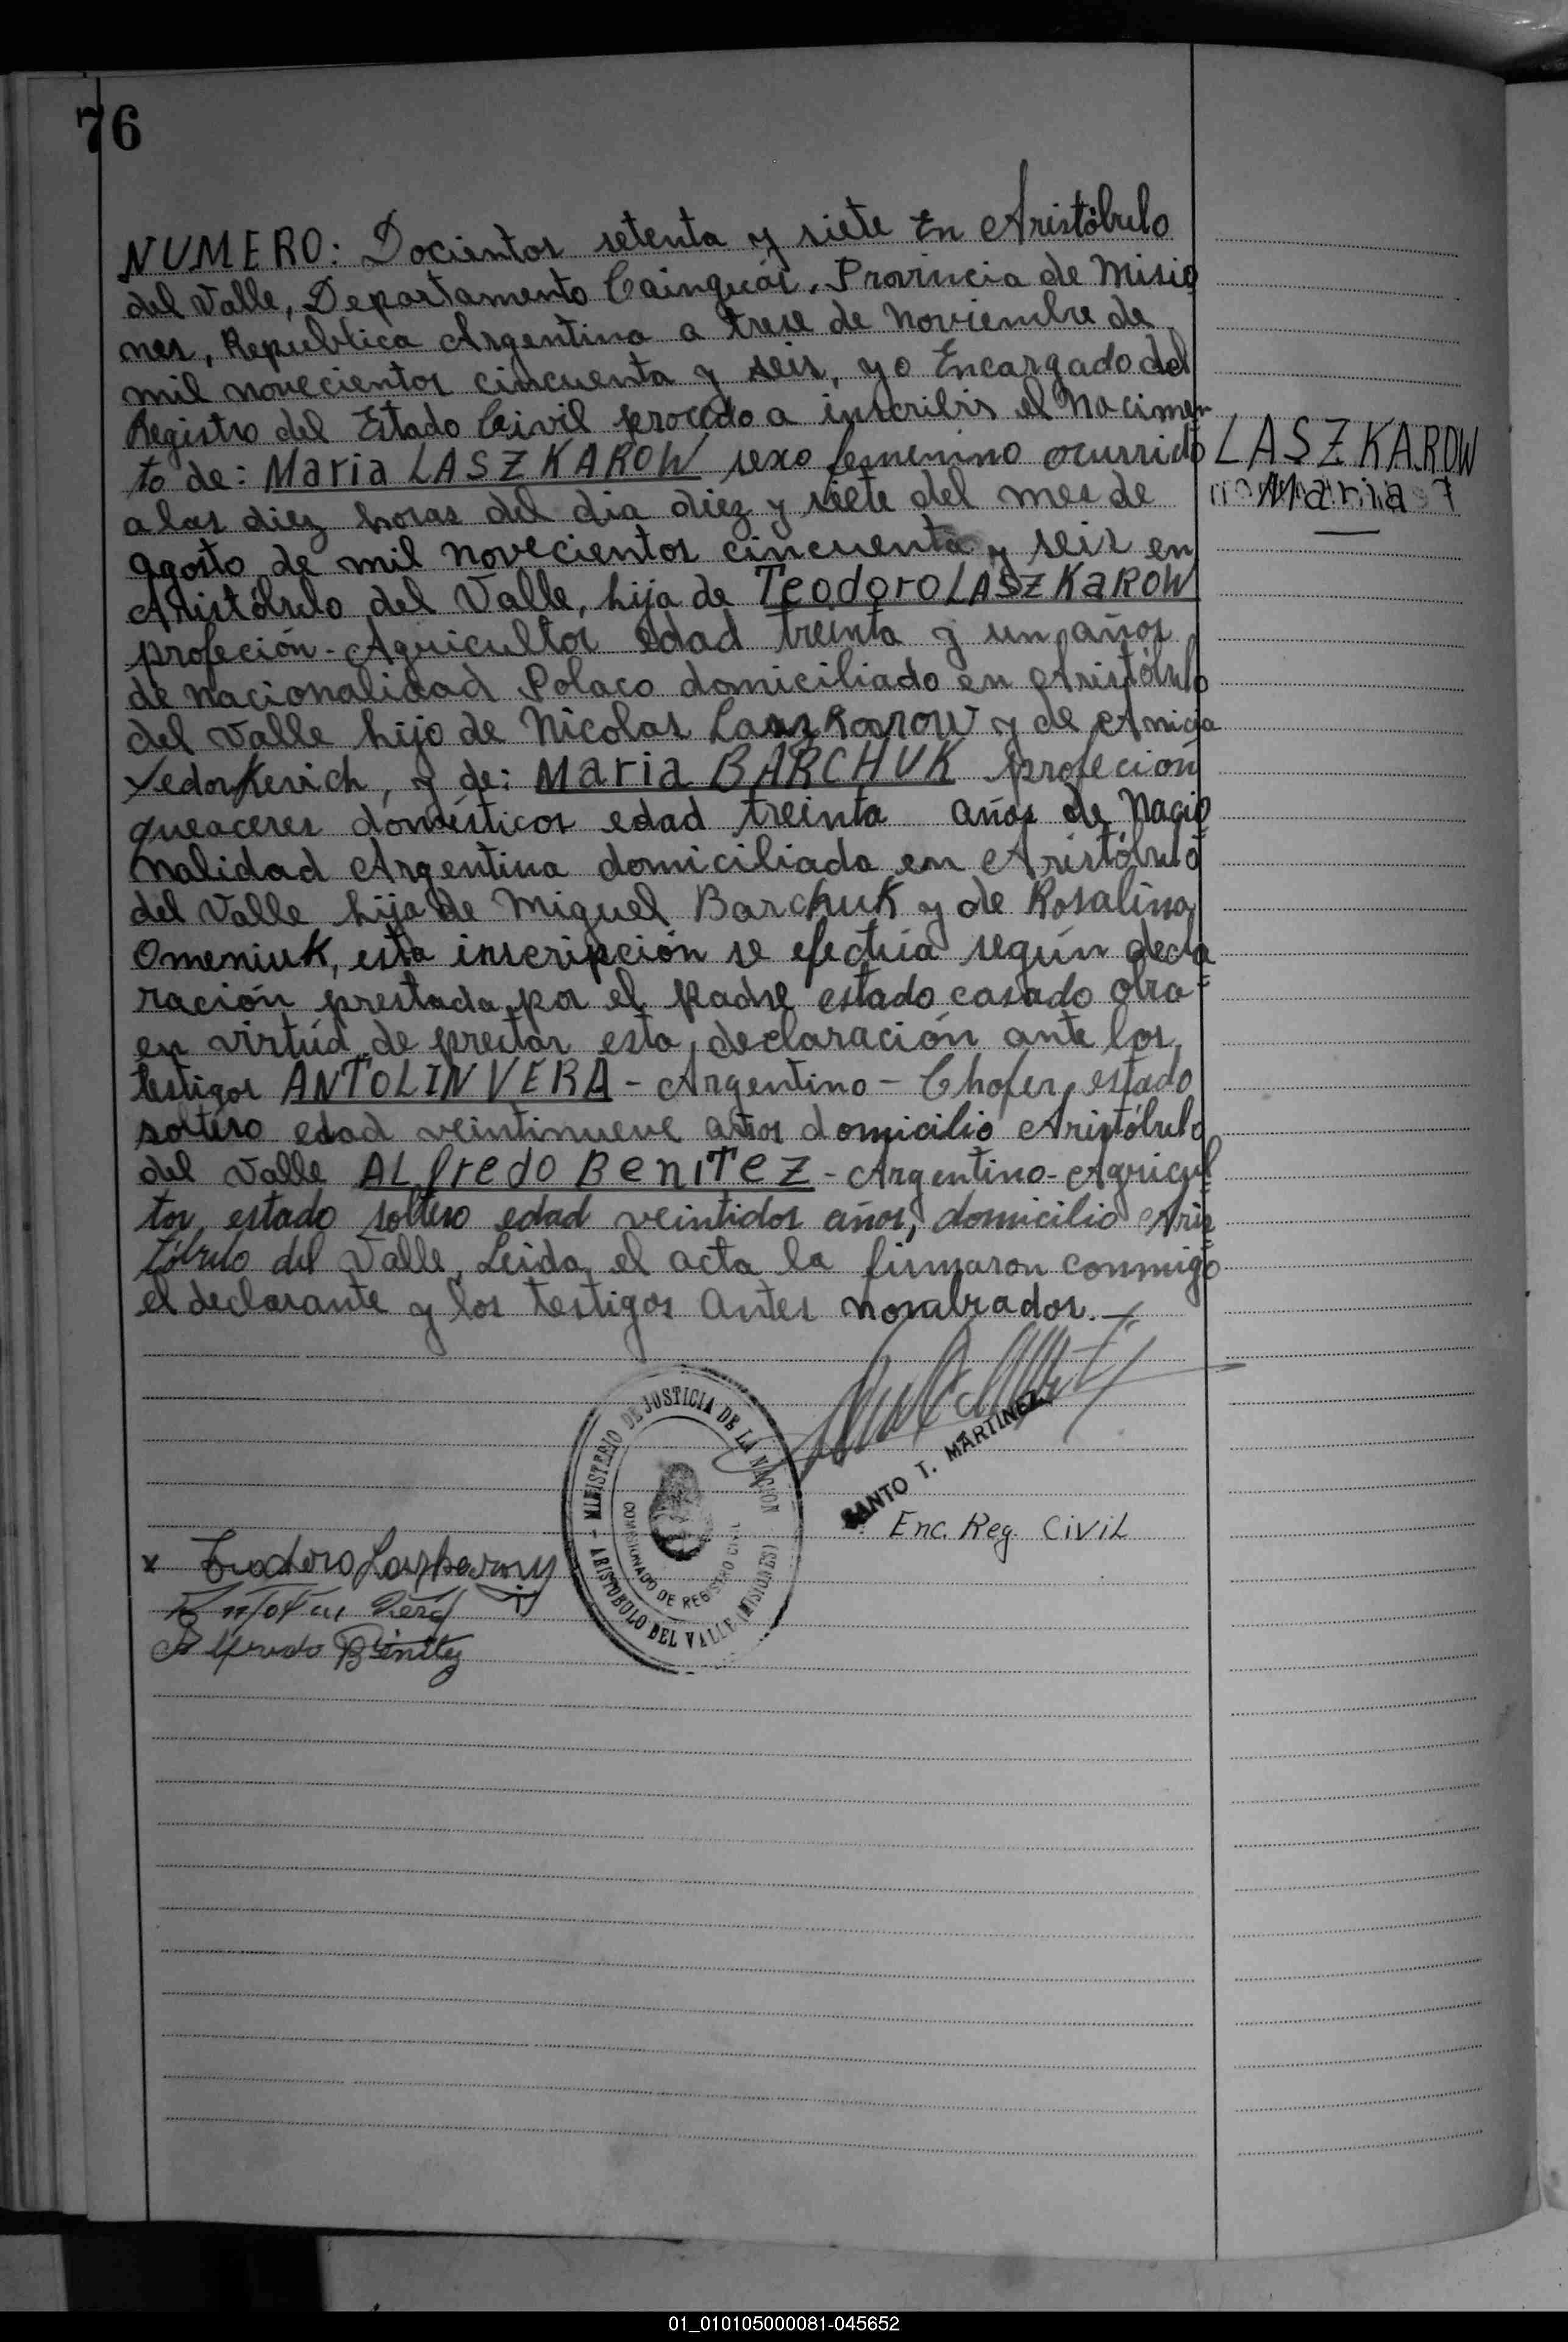 76
NUMERO: Docientos setenta y siete En Aristóbulo
del Valle, Departamento Cainguás, Provincia de Misio
nes, Republica Argentina a trese de Noviembre de
mil novecientos cincuenta y seis, yo Encargado del
Registro del Estado Civil procedo a inscribir el Nacimen
to de: Maria LASZKAROW sexo femenino ocurrido
LASZKAROW
Maria
a las diez horas del dia diez y siete del mes de
agosto de mil novecientos cincuenta y seis en
Aristóbulo del Valle, hija de Teodoro LASZKAROW
profeción - Agricultor edad treinta y un años
de nacionalidad Polaco domiciliado en Aristóbulo
del Valle hijo de Nicolas Laszkarow y de
Yedorkevich, y de: Maria BARCHUK profeción
queaceres domésticos edad treinta años de Nacio
nalidad Argentina domiciliada en Aristóbulo
del Valle hija de Miguel Barchuk y de Rosalina
Omeniuk, esta inscripción se efectúa según decla
ración prestada por el padre estado casado obra
en virtúd de prestar esta declaración ante los
testigos ANTOLIN VERA - Argentino - Chofer, estado
soltero edad veintinueve años domicilio Aristóbulo
del Valle ALfredo BeniTez - Argentino - Agricul
tor, estado soltero edad veintidos años, domicilio Aris
tóbulo del Valle, Leida el acta la firmaron conmigo
el declarante y los testigos antes nombrados.-
MINISTERIO DE JUSTICIA DE LA NACION
COMISIONADO DE REGISTRO CIVIL
ARISTOBULO DEL VALLE (MISIONES)
SANTO T. MARTINEZ
Enc. Reg. CiviL
x Teodoro
Alfredo Benitez
01_010105000081-045652